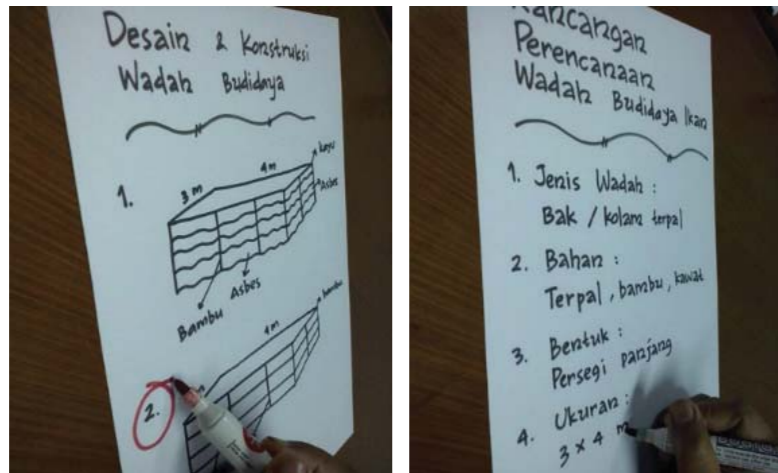 Desain & Konstruksi
Wadah Budidaya
1.
3 m
4 m
kayu
Asbes
Bambu
Asbes
bambu
4 m
2.
Rancangan
Perencanaan
Wadah Budidaya Ikan
1. Jenis Wadah :
Bak / kolam terpal
2. Bahan :
Terpal, bambu, kawat
3. Bentuk :
Persegi panjang
4. Ukuran :
3 x 4 m